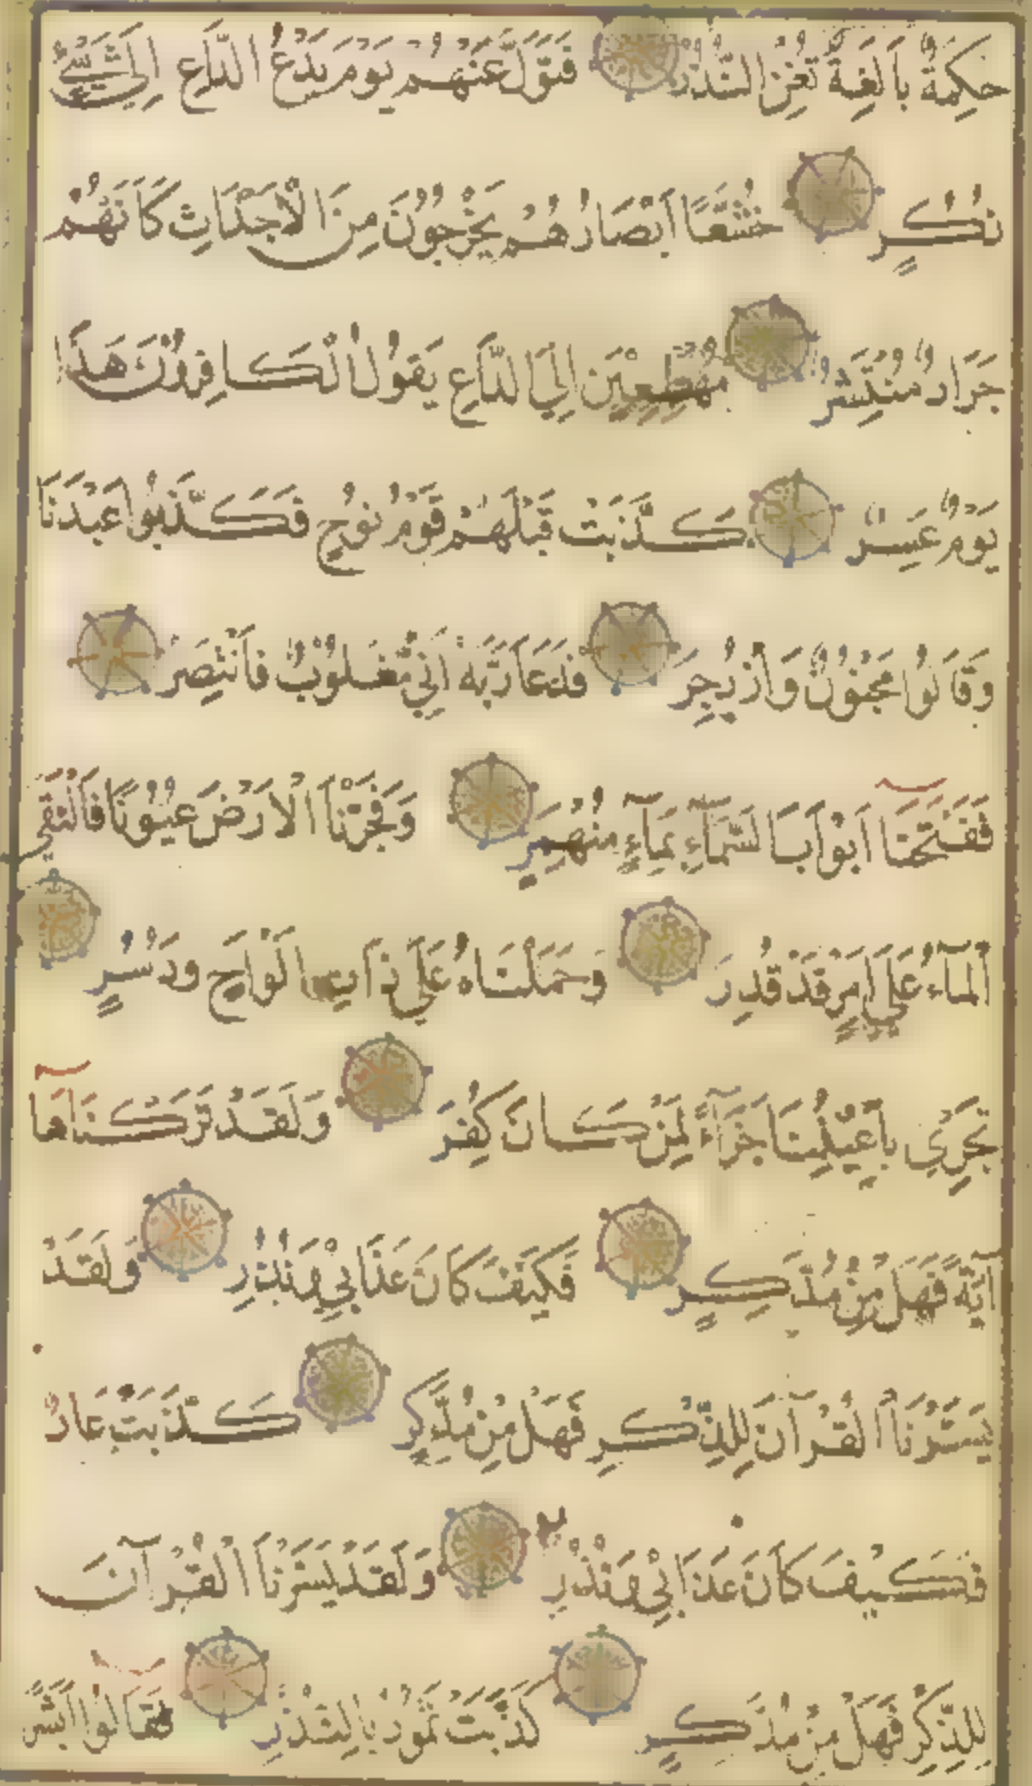 حِكْمَةٌ بَالِغَةٌ تُغْنِ النُّذُرُ فَتَوَلَّ عَنْهُمْ يَوْمَ يَدْعُ الدَّاعِ اِلَى شَيْءٍ
نُكُرٍ خُشَّعًا اَبْصَارُهُمْ يَخْرُجُونَ مِنَ الْاَجْدَاثِ كَاَنَّهُمْ
جَرَادٌ مُنْتَشِرٌ مُهْطِعِيْنَ اِلَى الدَّاعِ يَقُولُ الْكَافِرُوْنَ هَذَا
يَوْمٌ عَسِرٌ كَذَّبَتْ قَبْلَهُمْ قَوْمُ نُوحٍ فَكَذَّبُوا عَبْدَنَا
وَقَالُوا مَجْنُوْنٌ وَازْدُجِرَ فَدَعَا رَبَّهُ اَنِّي مَغْلُوْبٌ فَانْتَصِرْ
فَفَتَحْنَا اَبْوَابَ السَّمَآءِ بِمَآءٍ مُنْهَمِرٍ وَفَجَّرْنَا الْاَرْضَ عُيُونًا فَالْتَقَى
الْمَآءُ عَلَى اَمْرٍ قَدْ قُدِرَ وَحَمَلْنَاهُ عَلَى ذَاتِ اَلْوَاحٍ وَدُسُرٍ
تَجْرِي بِاَعْيُنِنَا جَزَآءً لِمَنْ كَانَ كُفِرَ وَلَقَدْ تَرَكْنَاهَا
آيَةً فَهَلْ مِنْ مُدَّكِرٍ فَكَيْفَ كَانَ عَذَابِيْ وَنُذُرِ وَلَقَدْ
يَسَّرْنَا الْقُرْآنَ لِلذِّكْرِ فَهَلْ مِنْ مُدَّكِرٍ كَذَّبَتْ عَادٌ
فَكَيْفَ كَانَ عَذَابِيْ وَنُذُرِ وَلَقَدْ يَسَّرْنَا الْقُرْآنَ
لِلذِّكْرِ فَهَلْ مِنْ مُدَّكِرٍ كَذَّبَتْ ثَمُوْدُ بِالنُّذُرِ فَقَالُوْا اَبَشَرً